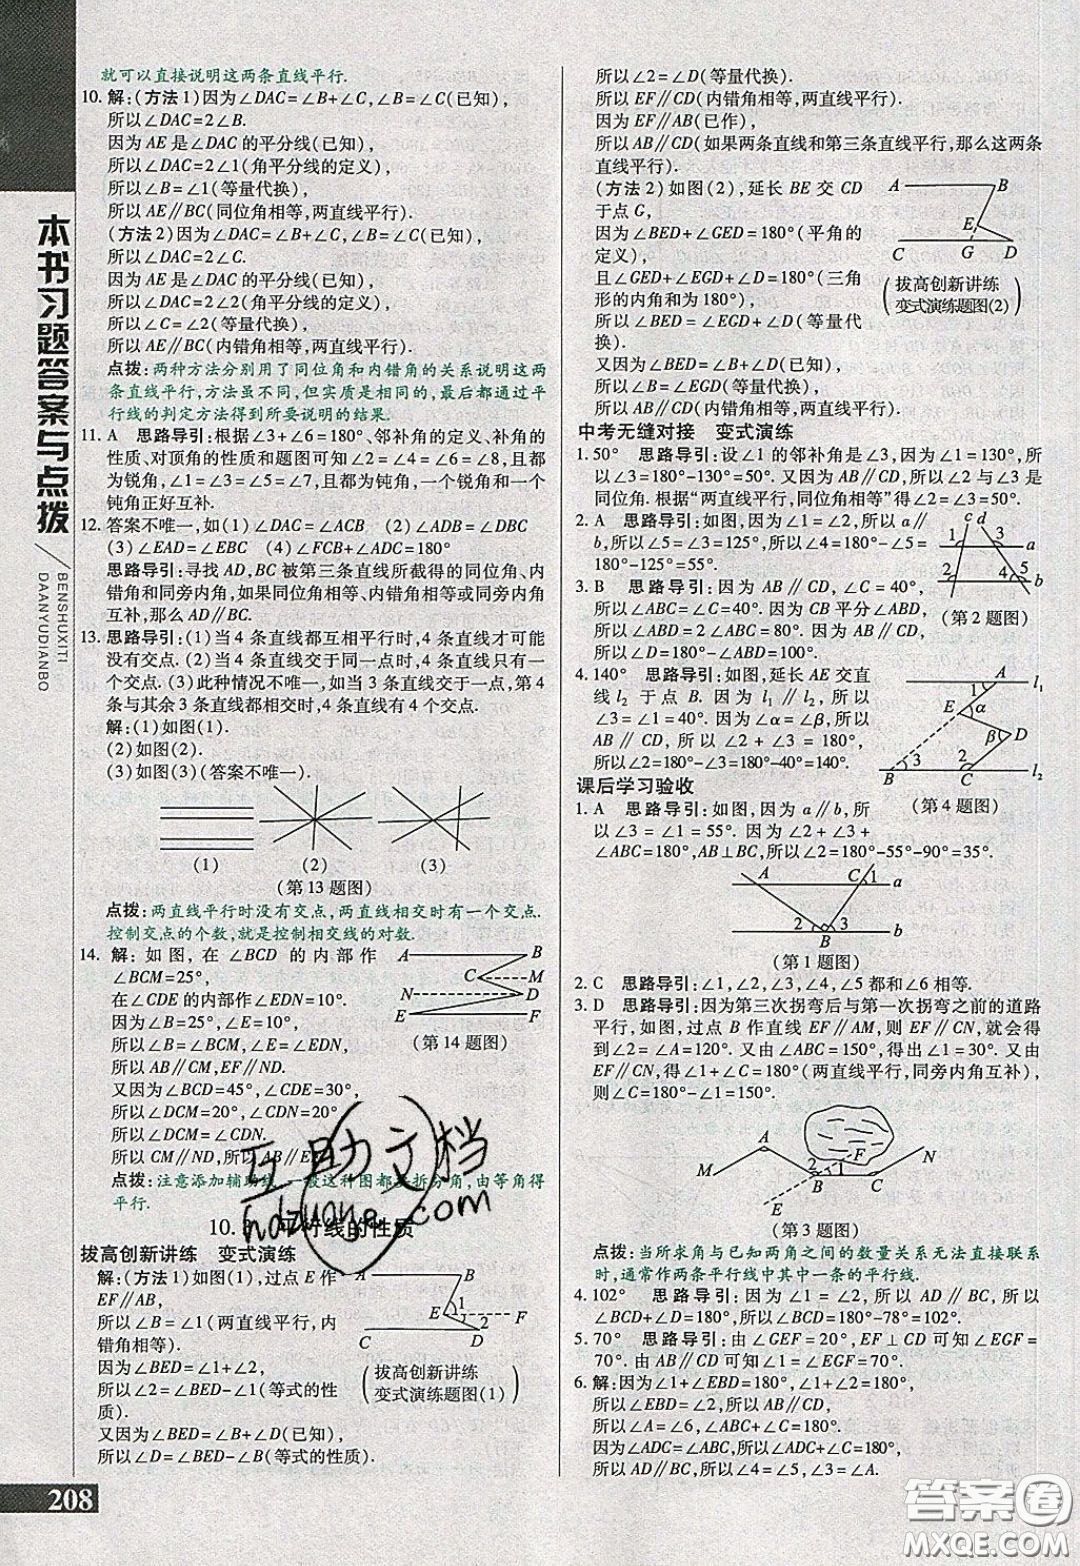 本书习题答案与点拨
BENSHUXITI
DAANYUDIANBO
208
就可以直接说明这两条直线平行.
10. 解:(方法1)因为∠DAC=∠B+∠C,∠B=∠C(已知),
所以∠DAC=2∠B.
因为 AE 是∠DAC 的平分线(已知),
所以∠DAC=2∠1(角平分线的定义),
所以∠B=∠1(等量代换),
所以 AE∥BC(同位角相等,两直线平行).
(方法2)因为∠DAC=∠B+∠C,∠B=∠C(已知),
所以∠DAC=2∠C.
因为 AE 是∠DAC 的平分线(已知),
所以∠DAC=2∠2(角平分线的定义),
所以∠C=∠2(等量代换),
所以 AE∥BC(内错角相等,两直线平行).
点拨:两种方法分别用了同位角和内错角的关系说明这两
条直线平行,方法虽不同,但实质是相同的,最后都通过平
行线的判定方法得到所要说明的结果.
11. A 思路导引:根据∠3+∠6=180°、邻补角的定义、补角的
性质、对顶角的性质和题图可知∠2=∠4=∠6=∠8,且都
为锐角,∠1=∠3=∠5=∠7,且都为钝角,一个锐角和一个
钝角正好互补.
12. 答案不唯一,如(1)∠DAC=∠ACB (2)∠ADB=∠DBC
(3)∠EAD=∠EBC (4)∠FCB+∠DAC=180°
思路导引:寻找 AD,BC 被第三条直线所截得的同位角、内
错角或同旁内角,如果同位角相等、内错角相等或同旁内角
互补,那么 AD∥BC.
13. 思路导引:(1)当 4 条直线都互相平行时,4 条直线才可能
没有交点.(2)当 4 条直线交于同一点时,4 条直线只有一
个交点.(3)此种情况不唯一,如当 3 条直线交于一点,第 4
条与其余 3 条直线都相交时,4 条直线有 4 个交点.
解:(1)如图(1).
(2)如图(2).
(3)如图(3)(答案不唯一).
(1) (2) (3)
(第 13 题图)
点拨:两直线平行时没有交点,两直线相交时有一个交点.
控制交点的个数,就是控制相交线的对数.
14. 解:如图,在∠BCD 的内部作
∠BCM=25°,
在∠CDE 的内部作∠EDN=10°.
因为∠B=25°,∠E=10°,
所以∠B=∠BCM,∠E=∠EDN,
所以 AB∥CM,EF∥ND.
又因为∠BCD=45°,∠CDE=30°,
所以∠DCM=20°,∠CDN=20°
所以∠DCM=∠CDN.
所以 CM∥ND,所以 AB∥EF.
A B
C M
N D
E F
(第 14 题图)
点拨:注意添加辅助线,一般这种图都要拆分角,由等角得
平行.
平行线的性质
拔高创新讲练 变式演练
解:(方法1)如图(1),过点 E 作
EF∥AB,
所以∠B=∠1(两直线平行,内
错角相等).
因为∠BED=∠1+∠2,
所以∠2=∠BED-∠1(等式的性
质).
又因为∠D=∠BED-∠B(已知),
所以∠D=∠BED-∠B(等式的性质).
A B
E 1 2 F
C D
(拔高创新讲练
变式演练题图(1))
所以∠2=∠D(等量代换).
所以 EF∥CD(内错角相等,两直线平行).
因为 EF∥AB(已作),
所以 AB∥CD(如果两条直线和第三条直线平行,那么这两条
直线平行).
(方法2)如图(2),延长 BE 交 CD
于点 G,
因为∠BED+∠GED=180°(平角的
定义),
且∠GED+∠EGD+∠D=180°(三角
形的内角和为 180°),
所以∠BED=∠EGD+∠D(等量代换).
又因为∠BED=∠B+∠D(已知),
所以∠B=∠EGD(等量代换).
所以 AB∥CD(内错角相等,两直线平行).
A B
E
C G D
(拔高创新讲练
变式演练题图(2))
中考无缝对接 变式演练
1. 50° 思路导引:设∠1 的邻补角是∠3,因为∠1=130°,所
以∠3=180°-130°=50°. 又因为 AB∥CD,所以∠2 与∠3 是
同位角. 根据“两直线平行,同位角相等”得∠2=∠3=50°.
2. A 思路导引:如图,因为∠1=∠2,所以 a∥
b,所以∠3=∠5=125°,所以∠4=180°-∠5=
180°-125°=55°.
c d
1 3 a
2 4 5 b
(第 2 题图)
3. B 思路导引:因为 AB∥CD,∠C=40°,
所以∠ABC=∠C=40°. 因为 CB 平分∠ABD,
所以∠ABD=2∠ABC=80°. 因为 AB∥CD,
所以∠D=180°-∠ABD=100°.
4. 140° 思路导引:如图,延长 AE 交直
线 l2 于点 B. 因为 l1∥l2,所以
∠3=∠1=40°. 因为∠α=∠β,所以
AB∥CD,所以∠2+∠3=180°,
所以∠2=180°-∠3=180°-40°=140°.
1 A l1
E α
β D
B 3 2 C l2
(第 4 题图)
课后学习验收
1. A 思路导引:如图,因为 a∥b,所
以∠3=∠1=55°. 因为∠2+∠3+
∠ABC=180°,AB⊥BC,所以∠2=180°-55°-90°=35°.
A C 1 a
2 3 b
B
(第 1 题图)
2. C 思路导引:∠1,∠2,∠4,∠5 都和∠6 相等.
3. D 思路导引:因为第三次拐弯后与第一次拐弯之前的道路
平行,如图,过点 B 作直线 EF∥AM,则 EF∥CN,就会得
到∠2=∠A=120°. 又由∠ABC=150°,得∠1=30°. 又由
EF∥CN,得∠1+∠C=180°(两直线平行,同旁内角互补),
则∠C=180°-∠1=150°.
M A E 2 1 F B C N
(第 3 题图)
点拨:当所求角与已知两角之间的数量关系无法直接联系
时,通常作两条平行线中其中一条的平行线.
4. 102° 思路导引:因为∠1=∠2,所以 AD∥BC,所以
∠BCD+∠D=180°,所以∠BCD=180°-78°=102°.
5. 70° 思路导引:由∠GEF=20°,EF⊥CD 可知∠EGF=
70°. 由 AB∥CD 可知∠1=∠EGF=70°.
6. 解:因为∠1+∠EBD=180°,∠1+∠2=180°,
所以∠EBD=∠2,所以 AE∥FC,
所以∠A+∠ADC=180°.
因为∠ADC=∠ABC,所以∠A+∠ABC=180°,
所以 AD∥BC,所以∠ADB=∠CBD.
互助文档
hdzuoye.com
答案圈
MXQE.COM